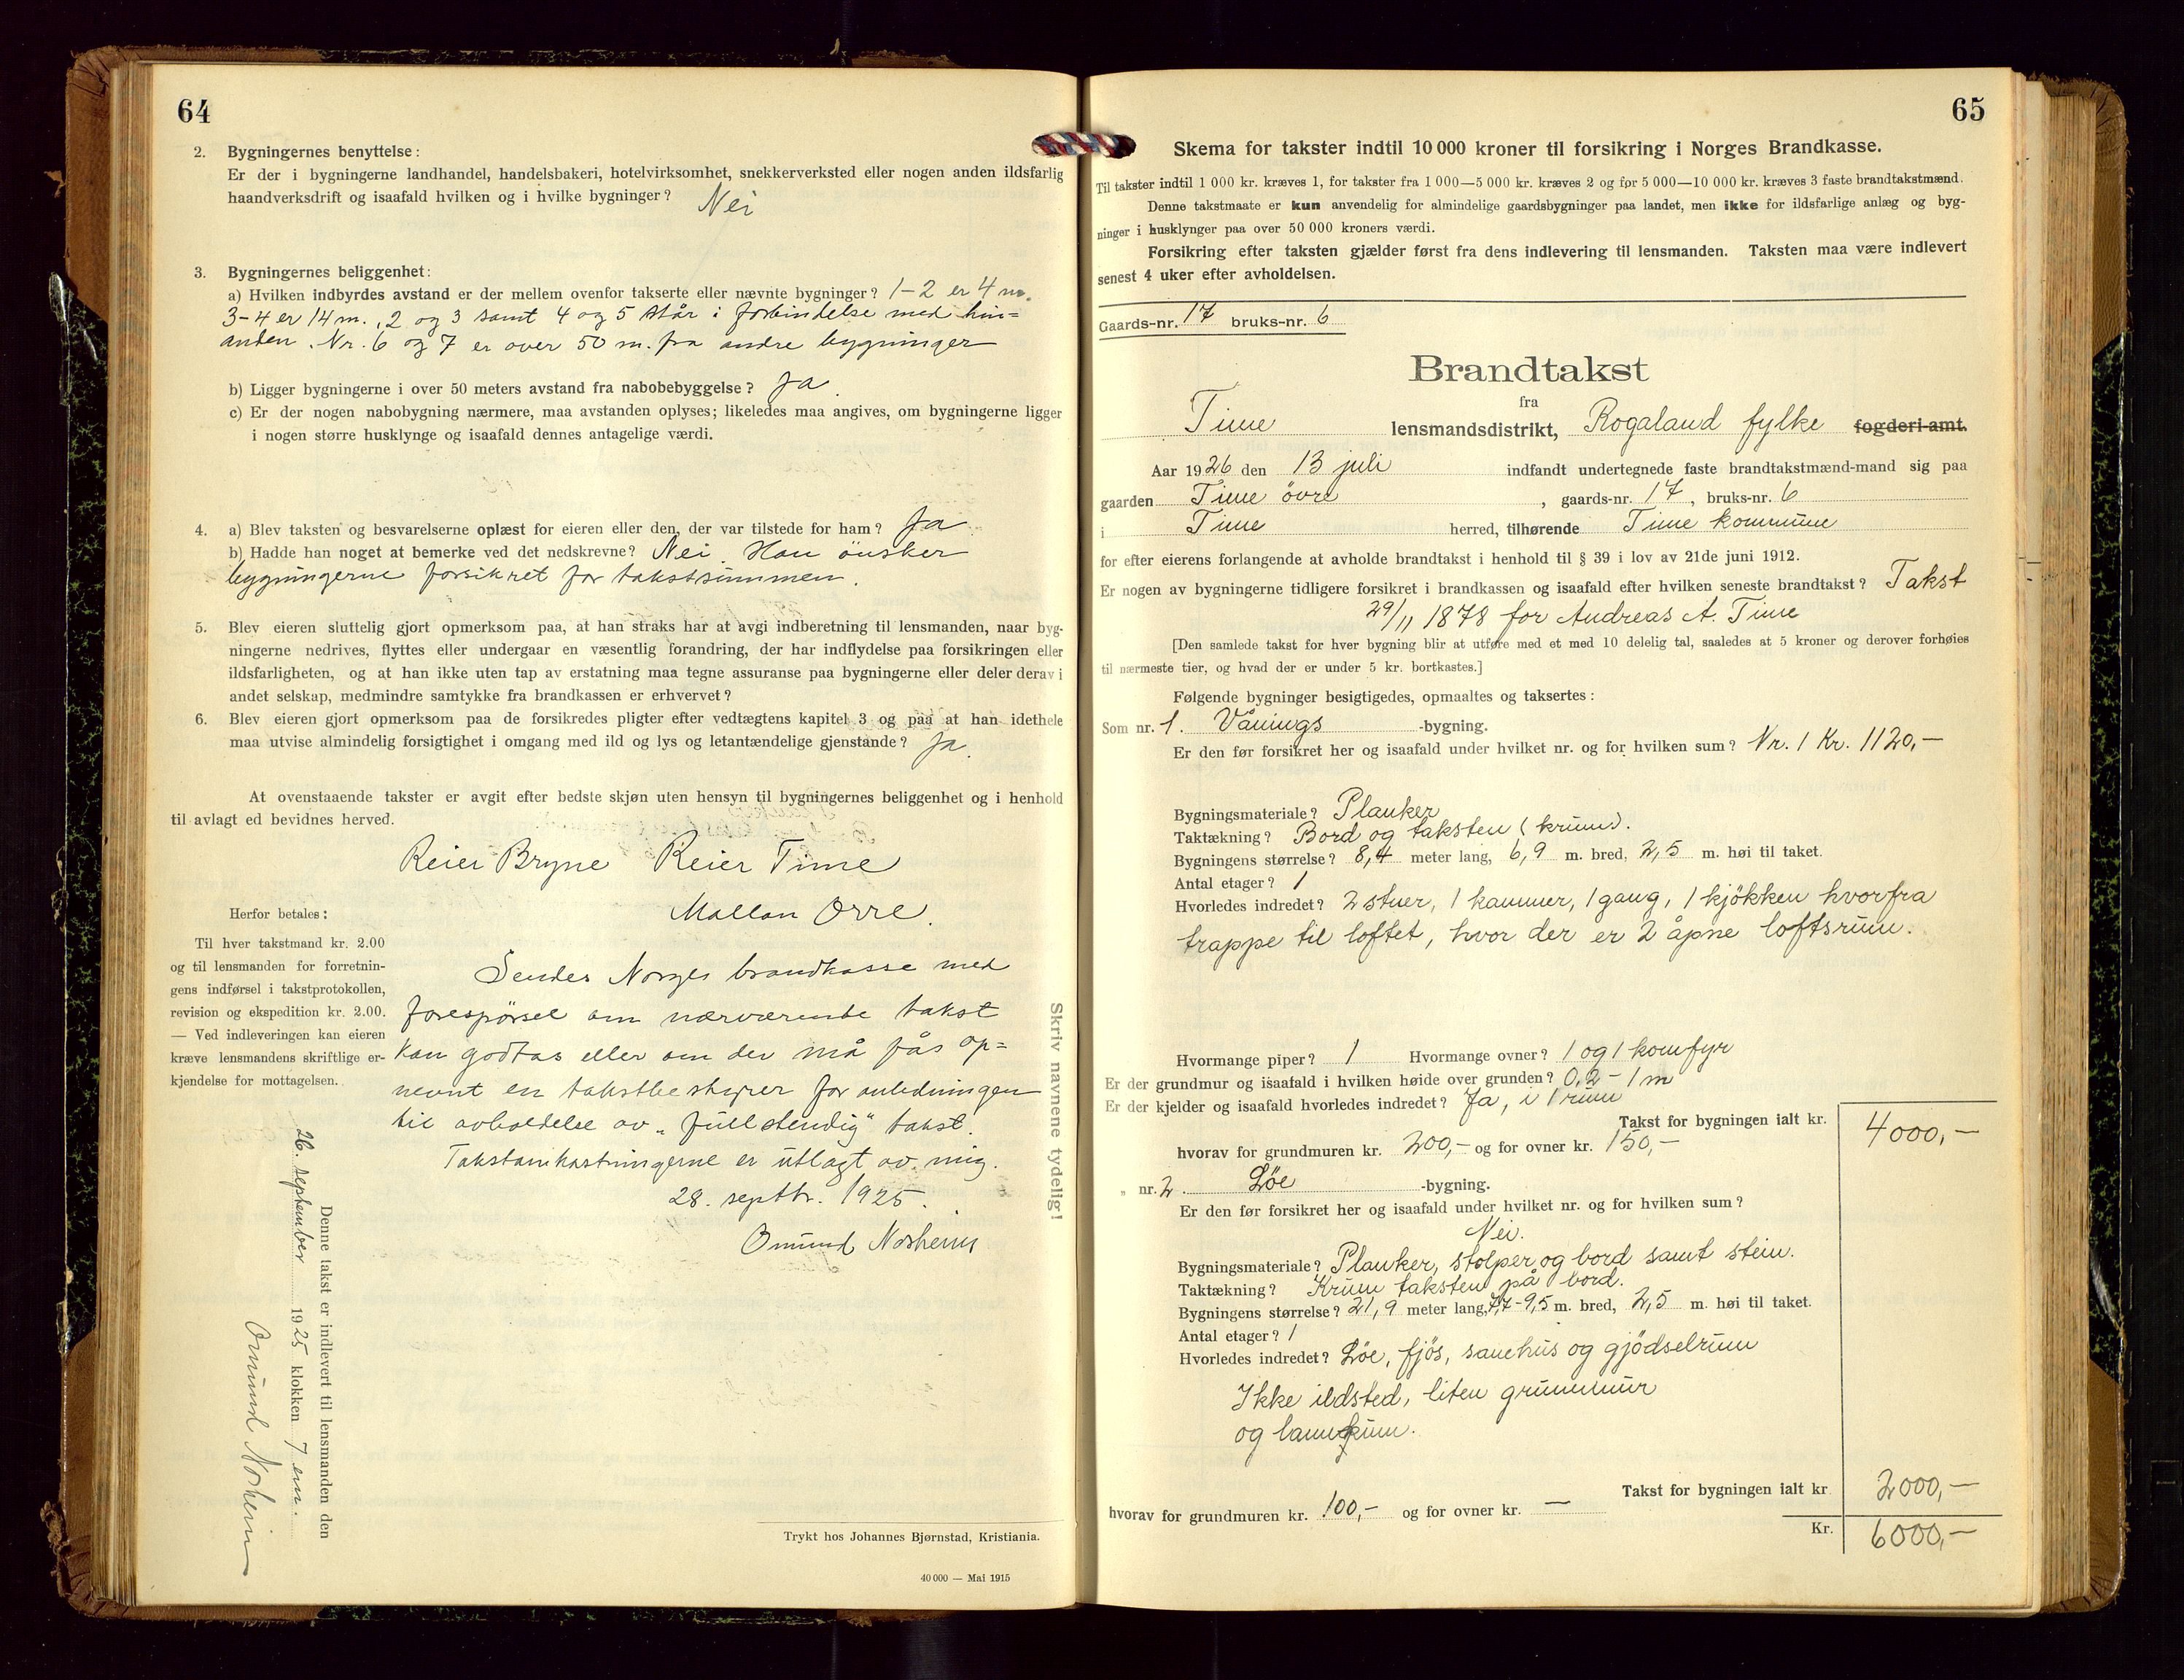 64
2. Bygningernes benyttelse:
Er der i bygningerne landhandel, handelsbakeri, hotelvirksomhet, snekkerverksted eller nogen anden ildsfarlig
haandverksdrift og isaafald hvilken og i hvilke bygninger? Nei
3. Bygningernes beliggenhet:
a) Hvilken indbyrdes avstand er der mellem ovenfor takserte eller nævnte bygninger? 1-2 er 4 m.
3-4 er 14 m., 2 og 3 samt 4 og 5 står i forbindelse med hin=
anden. Nr. 6 og 7 er over 50 m. fra andre bygninger
b) Ligger bygningerne i over 50 meters avstand fra nabobebyggelse? Ja.
c) Er der nogen nabobygning nærmere, maa avstanden oplyses; likeledes maa angives, om bygningerne ligger
i nogen større husklynge og isaafald dennes antagelige værdi.
4. a) Blev taksten og besvarelserne oplæst for eieren eller den, der var tilstede for ham? Ja
b) Hadde han noget at bemerke ved det nedskrevne? Nei. Han önsker
bygningerne forsikret for takstsummen.
5. Blev eieren sluttelig gjort opmerksom paa, at han straks har at avgi indberetning til lensmanden, naar byg-
ningerne nedrives, flyttes eller undergaar en væsentlig forandring, der har indflydelse paa forsikringen eller
ildsfarligheten, og at han ikke uten tap av erstatning maa tegne assuranse paa bygningerne eller deler derav i
andet selskap, medmindre samtykke fra brandkassen er erhvervet?
6. Blev eieren gjort opmerksom paa de forsikredes pligter efter vedtægtens kapitel 3 og paa at han idethele
maa utvise almindelig forsigtighet i omgang med ild og lys og letantændelige gjenstande? Ja.
At ovenstaaende takster er avgit efter bedste skjøn uten hensyn til bygningernes beliggenhet og i henhold
til avlagt ed bevidnes herved.
Reier Bryne Reier Time
Mallan Orre.
Herfor betales:
Til hver takstmand kr. 2.00
og til lensmanden for forretnin-
gens indførsel i takstprotokollen,
revision og ekspedition kr. 2.00.
— Ved indleveringen kan eieren
kræve lensmandens skriftlige er-
kjendelse for mottagelsen.
Sendes Norges brandkasse med
forespörsel om nærværende takst
kan godtas eller om der må fås op=
nevnt en takstbestyrer for anledningen
til avholdelse av "fullstendig" takst.
Takstomkostningerne er utlagt av mig.
28. septbr. 1925.
Omund Norheim
Skriv navnene tydelig!
Denne takst er indlevert til lensmanden den
26. september 1925 klokken 7 em.
Omund Norheim
Trykt hos Johannes Bjørnstad, Kristiania.
40 000 — Mai 1915
65
Skema for takster indtil 10 000 kroner til forsikring i Norges Brandkasse.
Til takster indtil 1 000 kr. kræves 1, for takster fra 1 000—5 000 kr. kræves 2 og før 5 000—10 000 kr. kræves 3 faste brandtakstmænd.
Denne takstmaate er kun anvendelig for almindelige gaardsbygninger paa landet, men ikke for ildsfarlige anlæg og byg-
ninger i husklynger paa over 50 000 kroners værdi.
Forsikring efter taksten gjælder først fra dens indlevering til lensmanden. Taksten maa være indlevert
senest 4 uker efter avholdelsen.
Gaards-nr. 17 bruks-nr. 6
Brandtakst
fra
Time lensmandsdistrikt, Rogaland fylke fogderi-amt.
Aar 1926 den 13 juli indfandt undertegnede faste brandtakstmænd-mand sig paa
gaarden Time övre, gaards-nr. 17, bruks-nr. 6
i Time herred, tilhørende Time kommune
for efter eierens forlangende at avholde brandtakst i henhold til § 39 i lov av 21de juni 1912.
Er nogen av bygningerne tidligere forsikret i brandkassen og isaafald efter hvilken seneste brandtakst? Takst
29/11 1878 for Andreas A. Time
[Den samlede takst for hver bygning blir at utføre med et med 10 delelig tal, saaledes at 5 kroner og derover forhøies
til nærmeste tier, og hvad der er under 5 kr. bortkastes.]
Følgende bygninger besigtigedes, opmaaltes og taksertes:
Som nr. 1. Vånings -bygning.
Er den før forsikret her og isaafald under hvilket nr. og for hvilken sum? Nr. 1 Kr. 1120,—
Bygningsmateriale? Planker
Taktækning? Bord og taksten (krum).
Bygningens størrelse? 8,4 meter lang, 6,9 m. bred, 2,5 m. høi til taket.
Antal etager? 1
Hvorledes indredet? 2 stuer, 1 kammer, 1 gang, 1 kjökken hvorfra
trappe til loftet, hvor der er 2 åpne loftsrum.
Hvormange piper? 1 Hvormange ovner? 1 og 1 komfyr
Er der grundmur og isaafald i hvilken høide over grunden? 0,2 - 1 m
Er der kjelder og isaafald hvorledes indredet? Ja, i 1 rum
Takst for bygningen ialt kr. 4000,—
hvorav for grundmuren kr. 200,— og for ovner kr. 150,—
„ nr. 2. Löe -bygning.
Er den før forsikret her og isaafald under hvilket nr. og for hvilken sum?
Nei.
Bygningsmateriale? Planker, stolper og bord samt stein.
Taktækning? Krum taksten på bord.
Bygningens størrelse? 21,9 meter lang, 7,7-9,5 m. bred, 2,5 m. høi til taket.
Antal etager? 1
Hvorledes indredet? Löe, fjös, sauehus og gjödselrum
Ikke ildsted, liten grunnmur
og
Takst for bygningen ialt kr 2000,—
hvorav for grundmuren kr. 100,— og for ovner kr. —
Kr. 6000,—